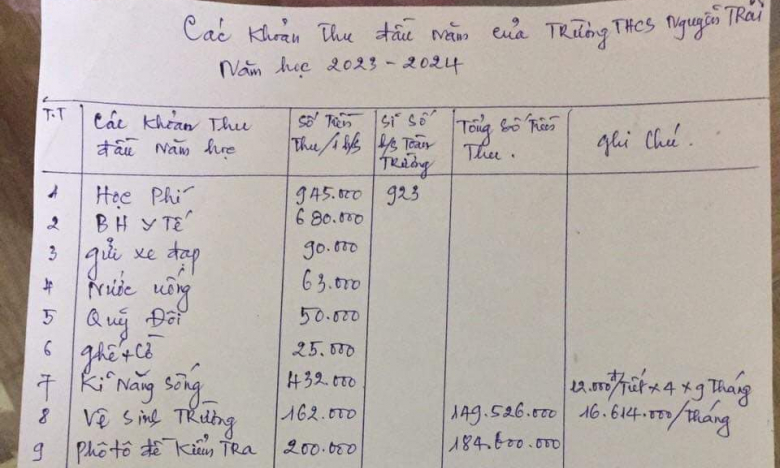 Các Khoản Thu đầu Năm của TRường THCS Nguyễn TRãi
Năm học 2023 - 2024
T.T Các Khoản Thu đầu Năm học Số Tiền Thu/1 h/s Sĩ Số h/s Toàn TRường Tổng Số Tiền Thu. ghi Chú.
1 Học Phí 945.000 923
2 BH Y TẾ 680.000
3 gửi xe đạp 90.000
4 Nước uống 63.000
5 Quỹ Đội 50.000
6 ghế + Cờ 25.000
7 Kĩ Năng Sống 432.000 12.000đ/Tiết x 4 x 9 Tháng
8 Vệ Sinh TRường 162.000 149.526.000 16.614.000/Tháng
9 Phô tô đề Kiểm TRa 200.000 184.600.000